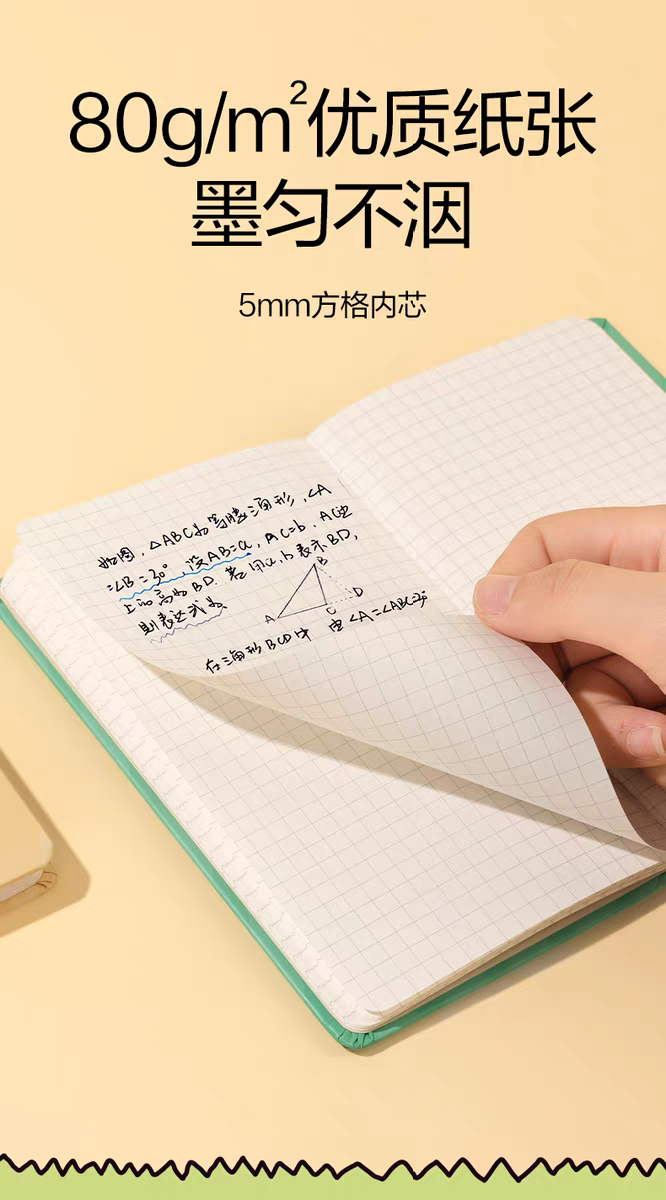 80g/m²优质纸张
墨匀不洇
5mm方格内芯
如图,△ABC为等腰三角形,∠A
=∠B=30°,设AB=a,AC=b.AC边
上的高为BD.若用a,b表示BD,
则表达式为
B
A
C
D
在三角形BCD中 由∠A=∠ABC